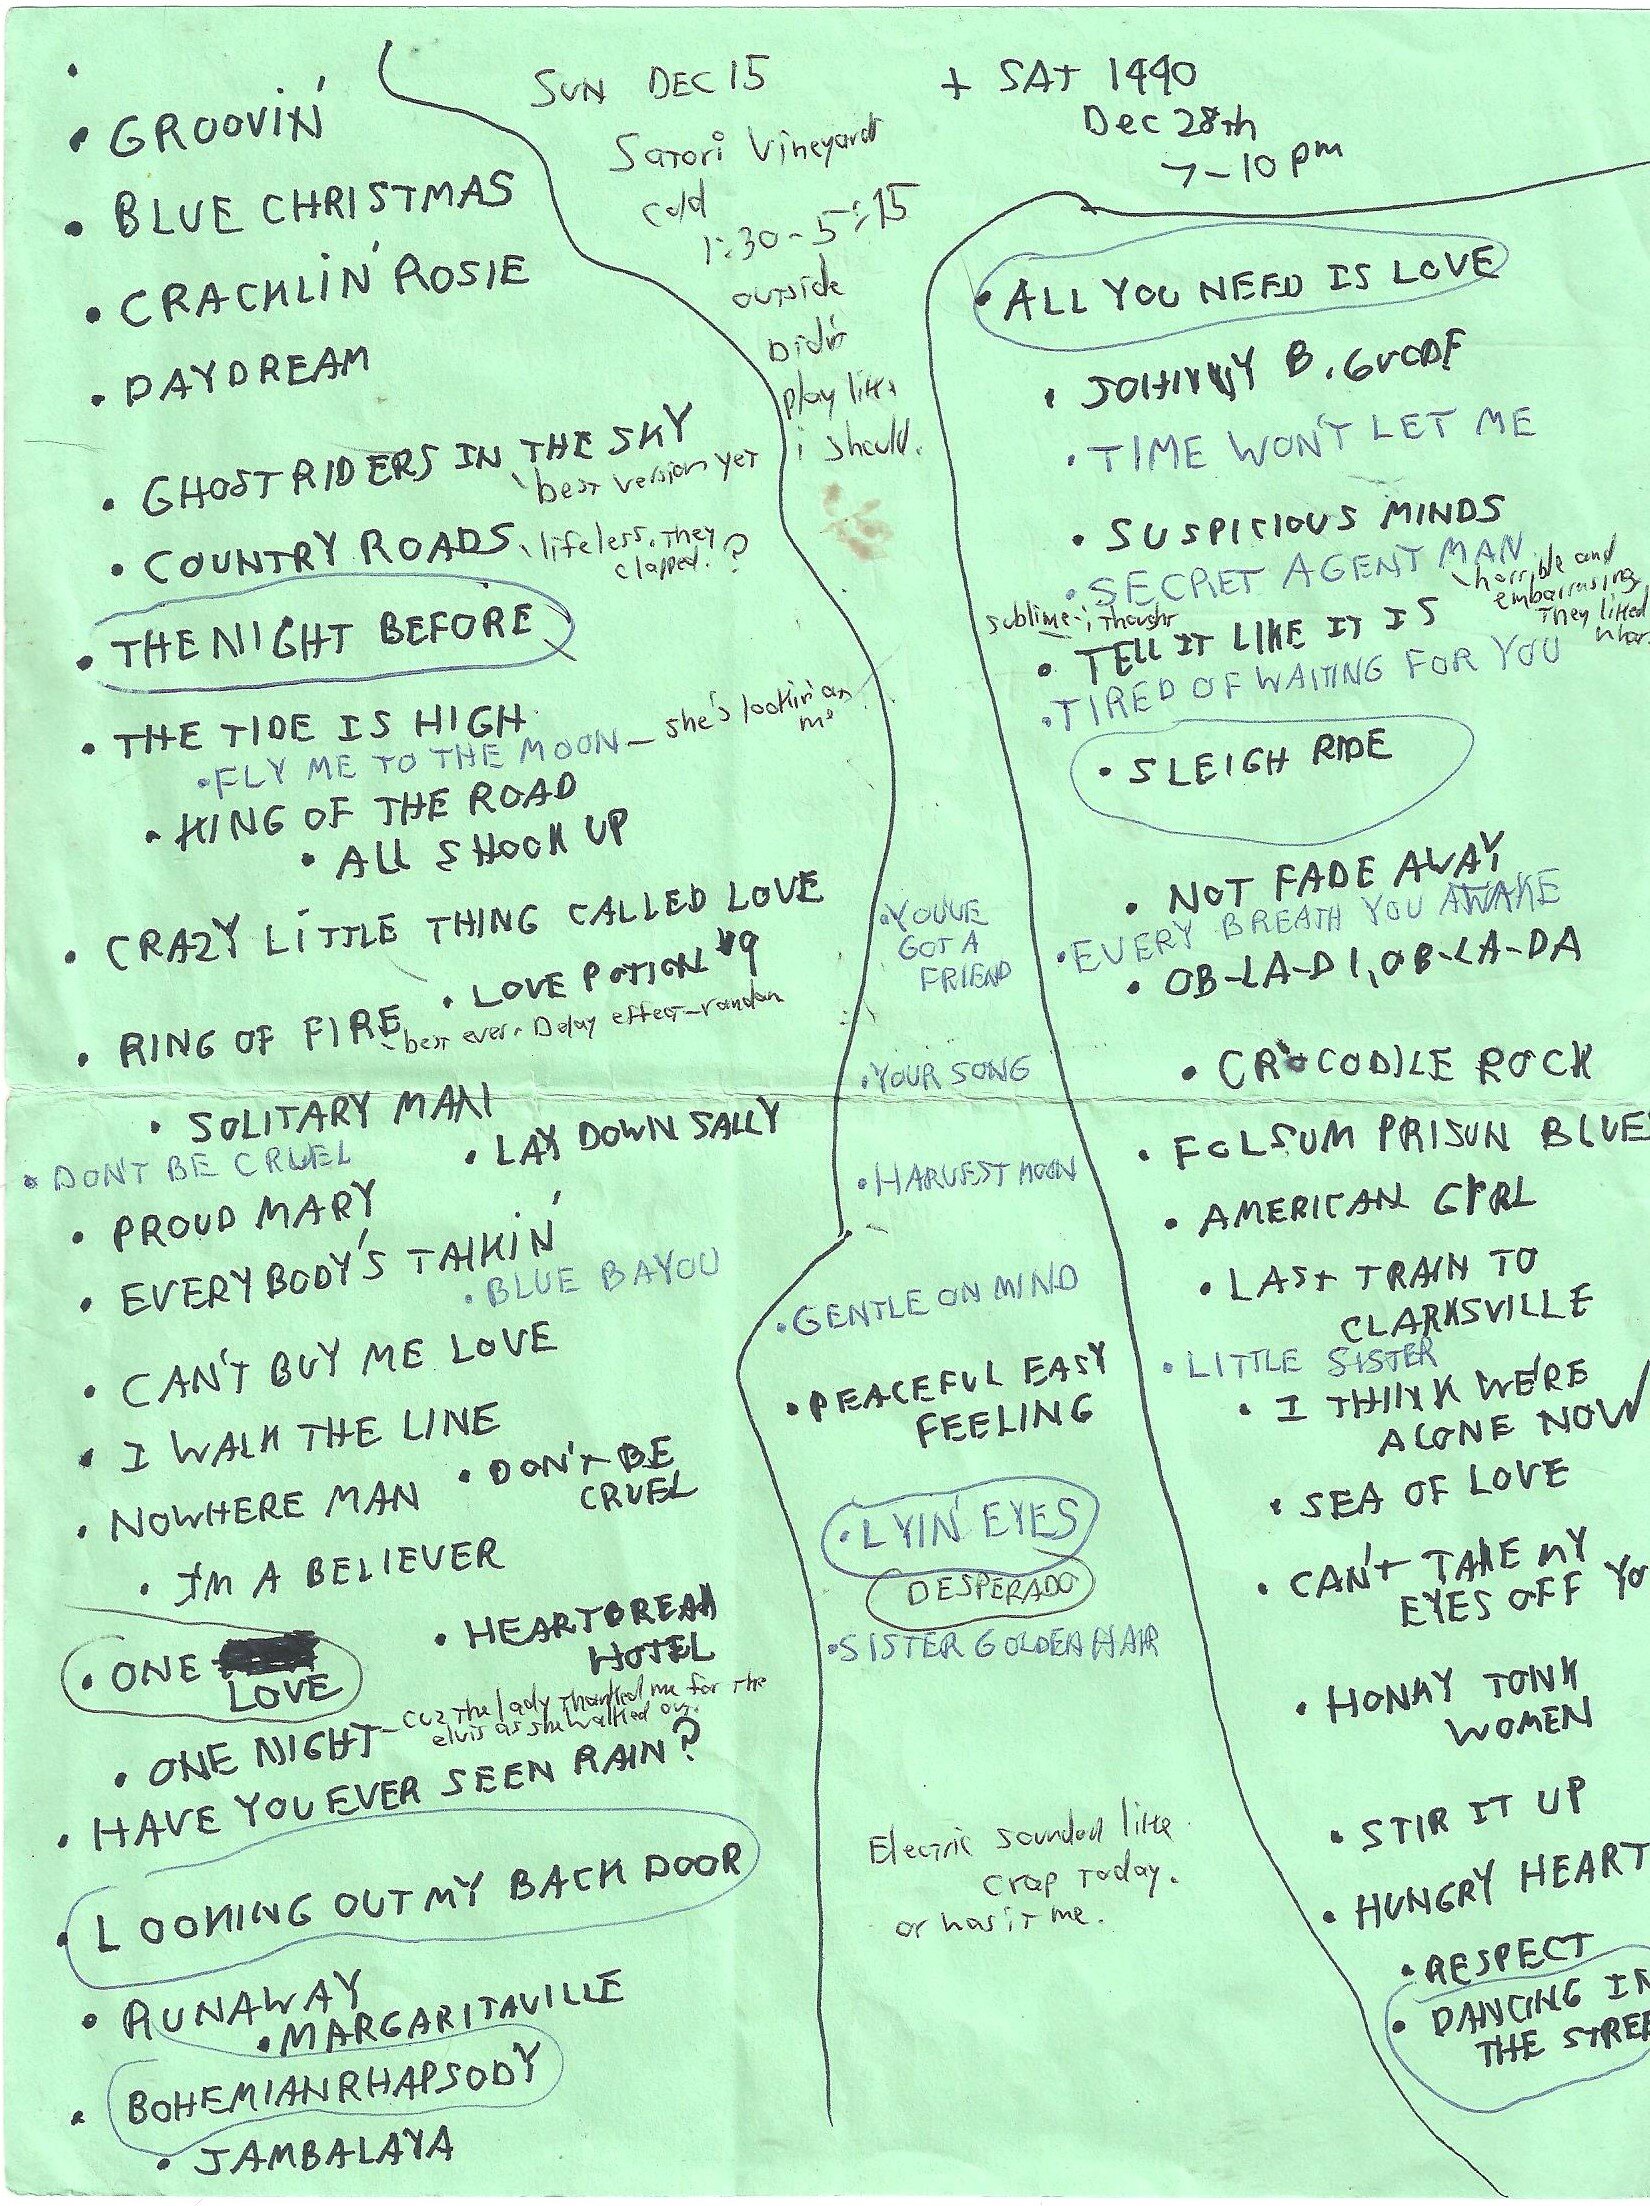 • GROOVIN'
• BLUE CHRISTMAS
• CRACKLIN' ROSIE
• DAYDREAM
• GHOST RIDERS IN THE SKY
best version yet
• COUNTRY ROADS
lifeless. They
clapped.?
• THE NIGHT BEFORE
• THE TIDE IS HIGH
• FLY ME TO THE MOON — she's lookin' an
• KING OF THE ROAD
• ALL SHOOK UP
• CRAZY LITTLE THING CALLED LOVE
• LOVE POTION #9
• RING OF FIRE
best ever. Delay effect - random
• SOLITARY MAN
• LAY DOWN SALLY
• DON'T BE CRUEL
• PROUD MARY
• EVERYBODY'S TALKIN'
• BLUE BAYOU
• CAN'T BUY ME LOVE
• I WALK THE LINE
• DON'T BE
CRUEL
• NOWHERE MAN
• I'M A BELIEVER
• HEARTBREAK
HOTEL
• ONE
LOVE
• ONE NIGHT — cuz the lady thanked me for the
elvis as she walked out.
• HAVE YOU EVER SEEN RAIN?
• LOOKING OUT MY BACK DOOR
• RUNAWAY
• MARGARITAVILLE
• BOHEMIAN RHAPSODY
• JAMBALAYA
SUN DEC 15
Satori Vineyard
cold
1:30 - 5:15
outside
Didn't
play like
i should.
• YOU'VE
GOT A
FRIEND
• YOUR SONG
• HARVEST MOON
• GENTLE ON MIND
• PEACEFUL EASY
FEELING
• LYIN' EYES
DESPERADO
• SISTER GOLDEN HAIR
Electric sounded like
crap today.
or was it me.
+ SAT 1440
Dec 28th
7-10 pm
• ALL YOU NEED IS LOVE
• JOHNNY B. GOODE
• TIME WON'T LET ME
• SUSPICIOUS MINDS
• SECRET AGENT MAN
horrible and
embarrasing.
They liked
sublime - i thought
• TELL IT LIKE IT IS
• TIRED OF WAITING FOR YOU
• SLEIGH RIDE
• NOT FADE AWAY
• EVERY BREATH YOU AWAKE
• OB-LA-DI, OB-LA-DA
• CROCODILE ROCK
• FOLSUM PRISUN BLUE
• AMERICAN GIRL
• LAST TRAIN TO
CLARKSVILLE
• LITTLE SISTER
• I THINK WE'RE
ALONE NOW
• SEA OF LOVE
• CAN'T TAKE MY
EYES OFF YO
• HONKY TONK
WOMEN
• STIR IT UP
• HUNGRY HEART
• RESPECT
• DANCING IN
THE STREE